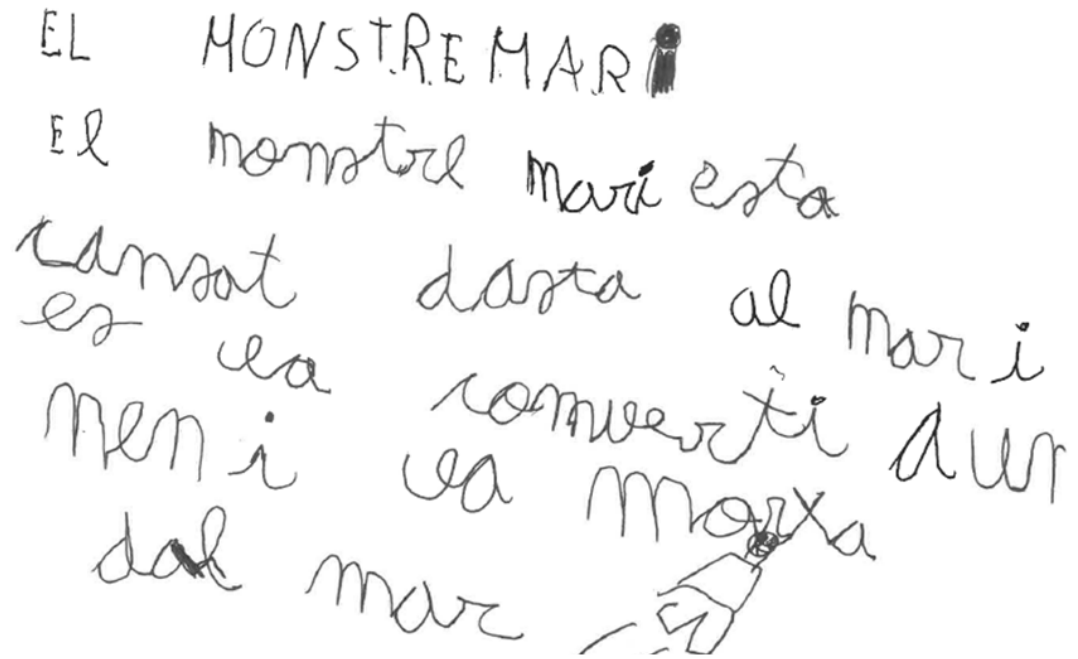 EL MONSTRE MARI
El monstre mari esta
cansat dasta al mari
es va comverti aun
nen i va marxa
dal mar